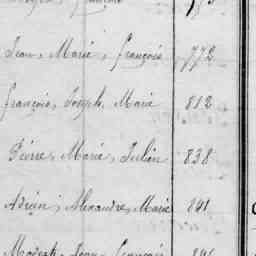 Jean, Marie, François 772
François, Joseph, Marie 812
Pierre, Marie, Julien 838
Adrien, Alexandre, Marie 841
Modeste, Jean, François